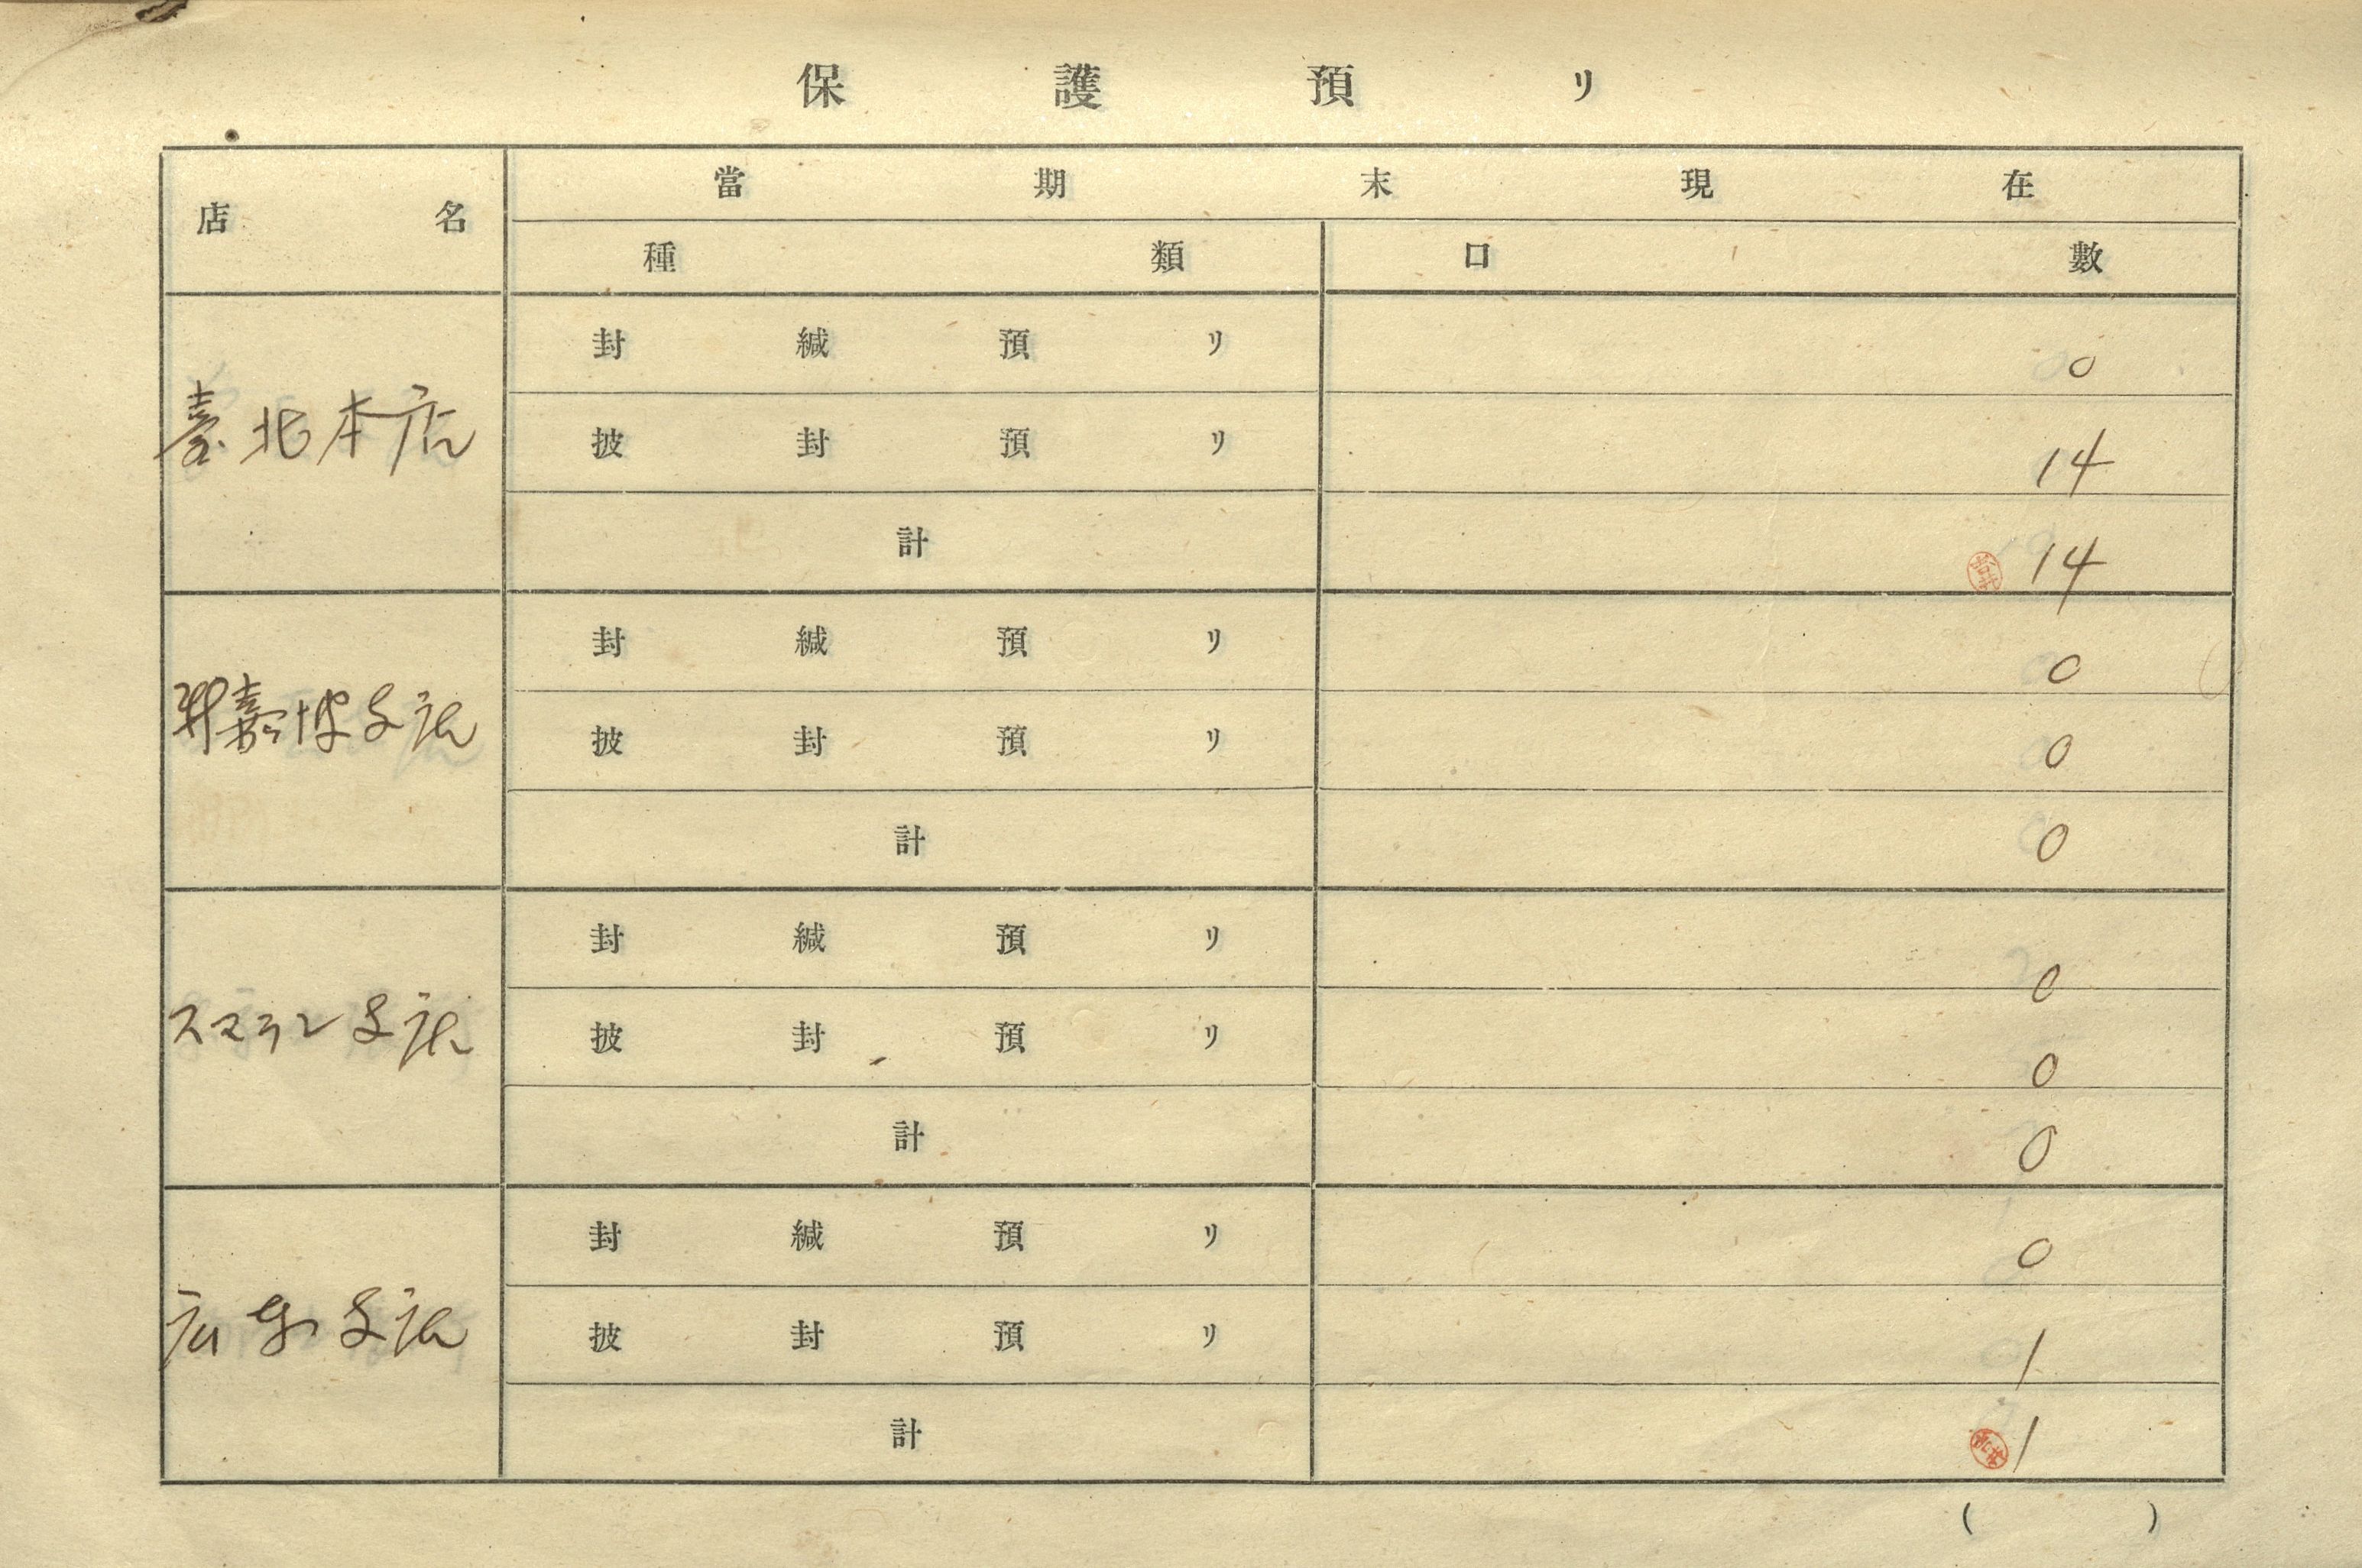 保護預リ
店名 當期末現在
種類 口數
臺北本店 封緘預リ 0
披封預リ 14
計 14
封緘預リ 0
披封預リ 0
計 0
スマラン支店 封緘預リ 0
披封預リ 0
計 0
広東支店 封緘預リ 0
披封預リ 1
計 1
( )